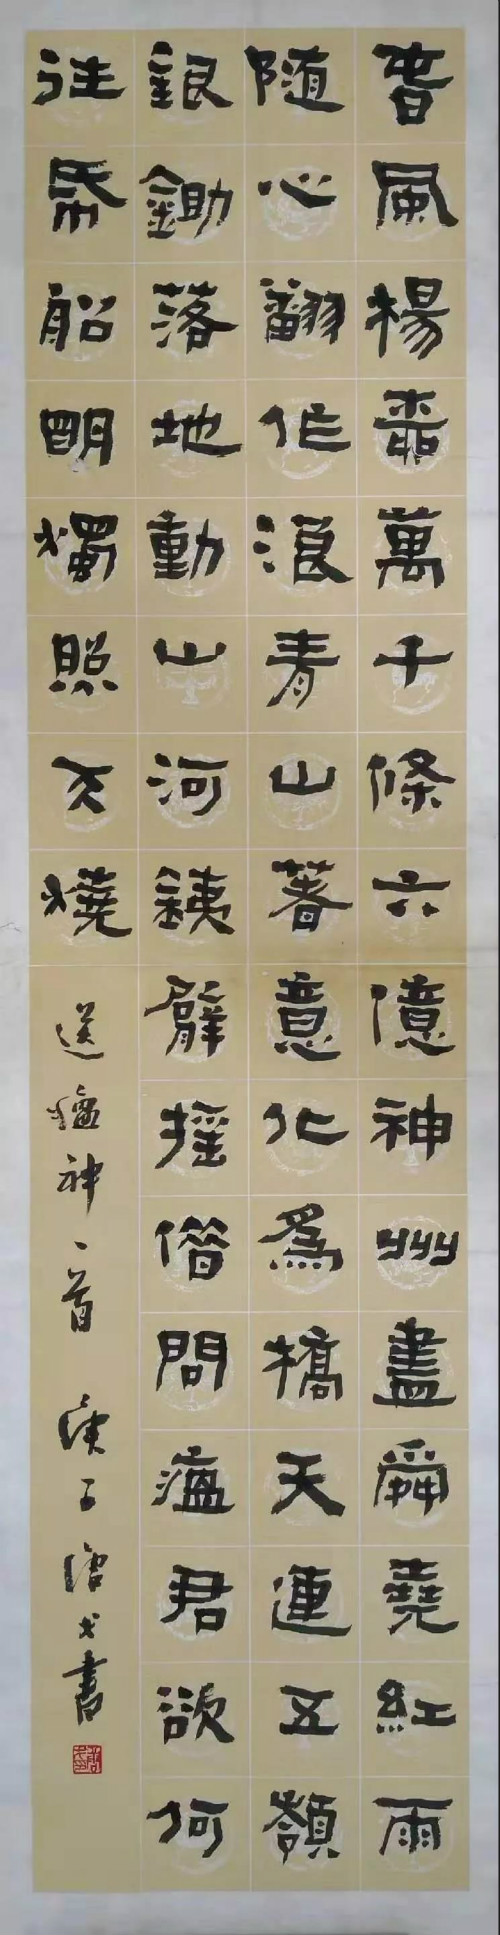 春風楊桺萬千條六億神州盡舜堯紅雨
随心翻作浪青山著意化為橋天連五嶺
銀鋤落地動山河銕臂摇借問瘟君欲何
往帋船明燭照天燒
送瘟神一首 庚子 書